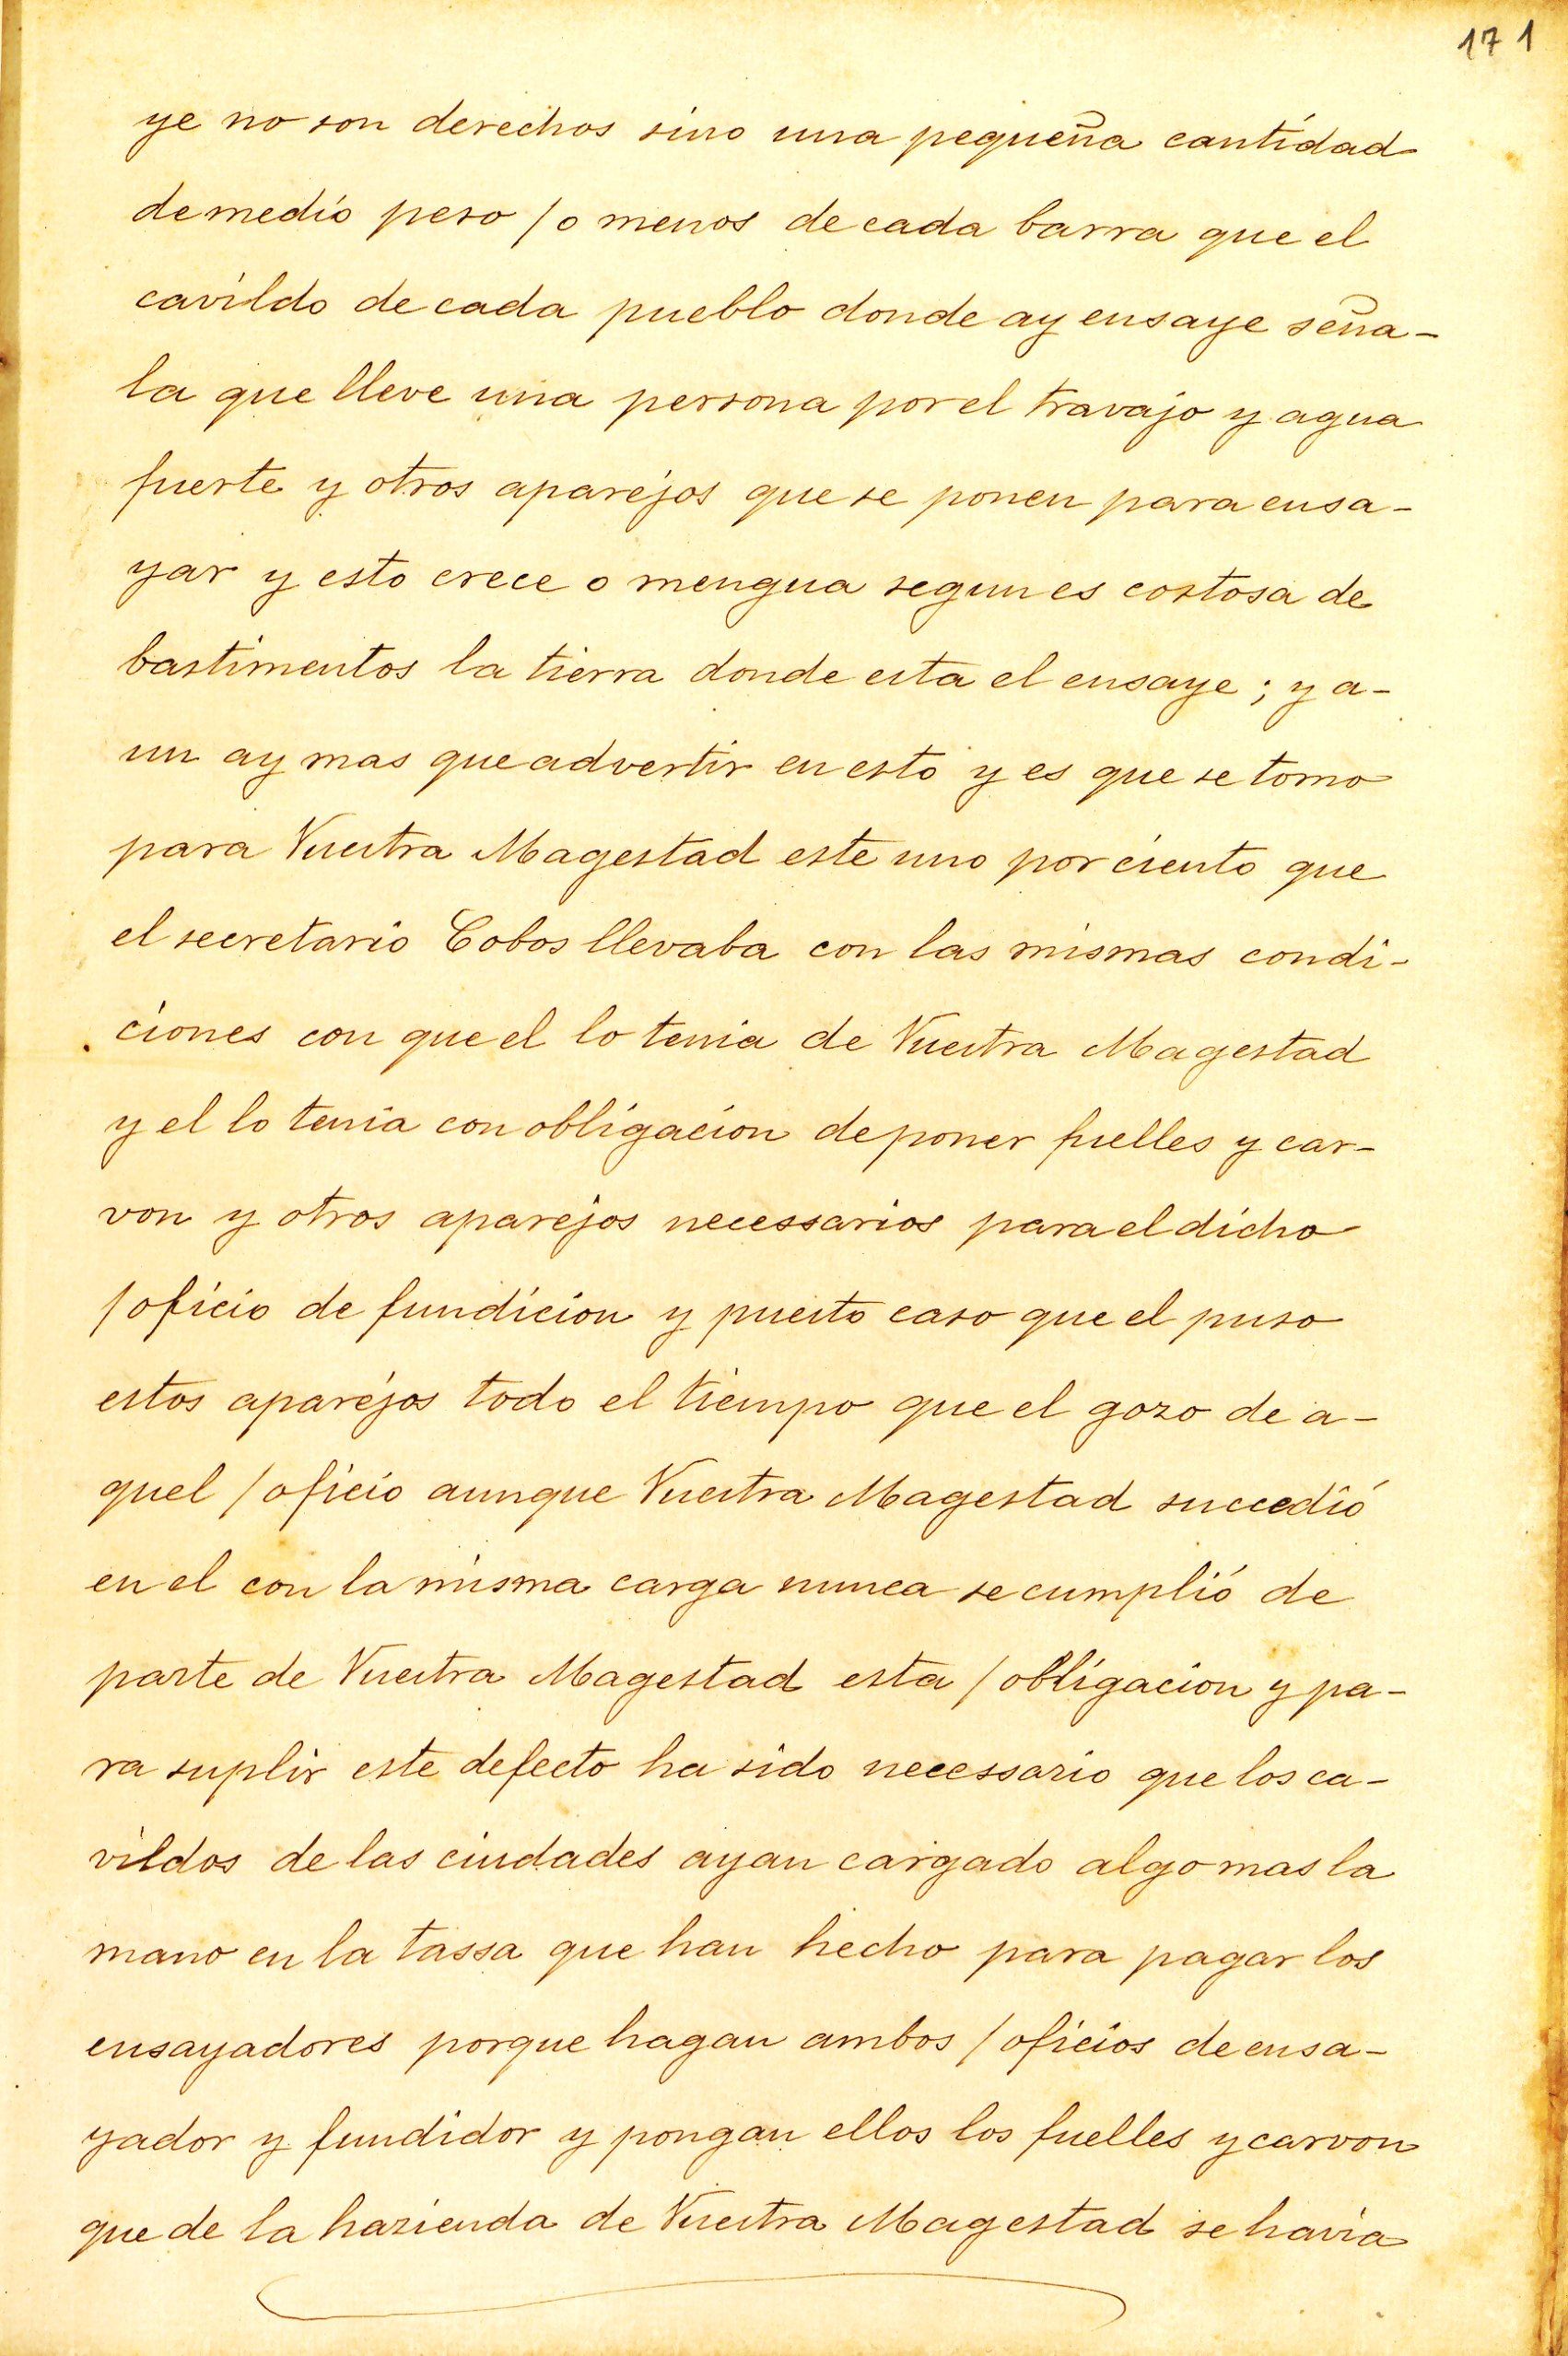 171
ye no son derechos sino una pequeña cantidad
de medio peso / o menos de cada barra que el
cavildo de cada pueblo donde ay ensaye seña-
la que lleve una persona por el travajo y agua
fuerte y otros aparejos que se ponen para ensa-
yar y esto crece o mengua segun es costosa de
bastimentos la tierra donde esta el ensaye; y a-
un ay mas que advertir en esto y es que se tomo
para Vuestra Magestad este uno por ciento que
el secretario Cobos llevaba con las mismas condi-
ciones con que el lo tenia de Vuestra Magestad
y el lo tenia con obligacion de poner fuelles y car-
von y otros aparejos necessarios para el dicho
/ oficio de fundicion y puesto caso que el puso
estos aparejos todo el tiempo que el gozo de a-
quel / oficio aunque Vuestra Magestad succedió
en el con la misma carga nunca se cumplió de
parte de Vuestra Magestad esta / obligacion y pa-
ra suplir este defecto ha sido necessario que los ca-
vildos de las ciudades ayan cargado algo mas la
mano en la tassa que han hecho para pagar los
ensayadores porque hagan ambos / oficios de ensa-
yador y fundidor y pongan ellos los fuelles y carvon
que de la hazienda de Vuestra Magestad se havia